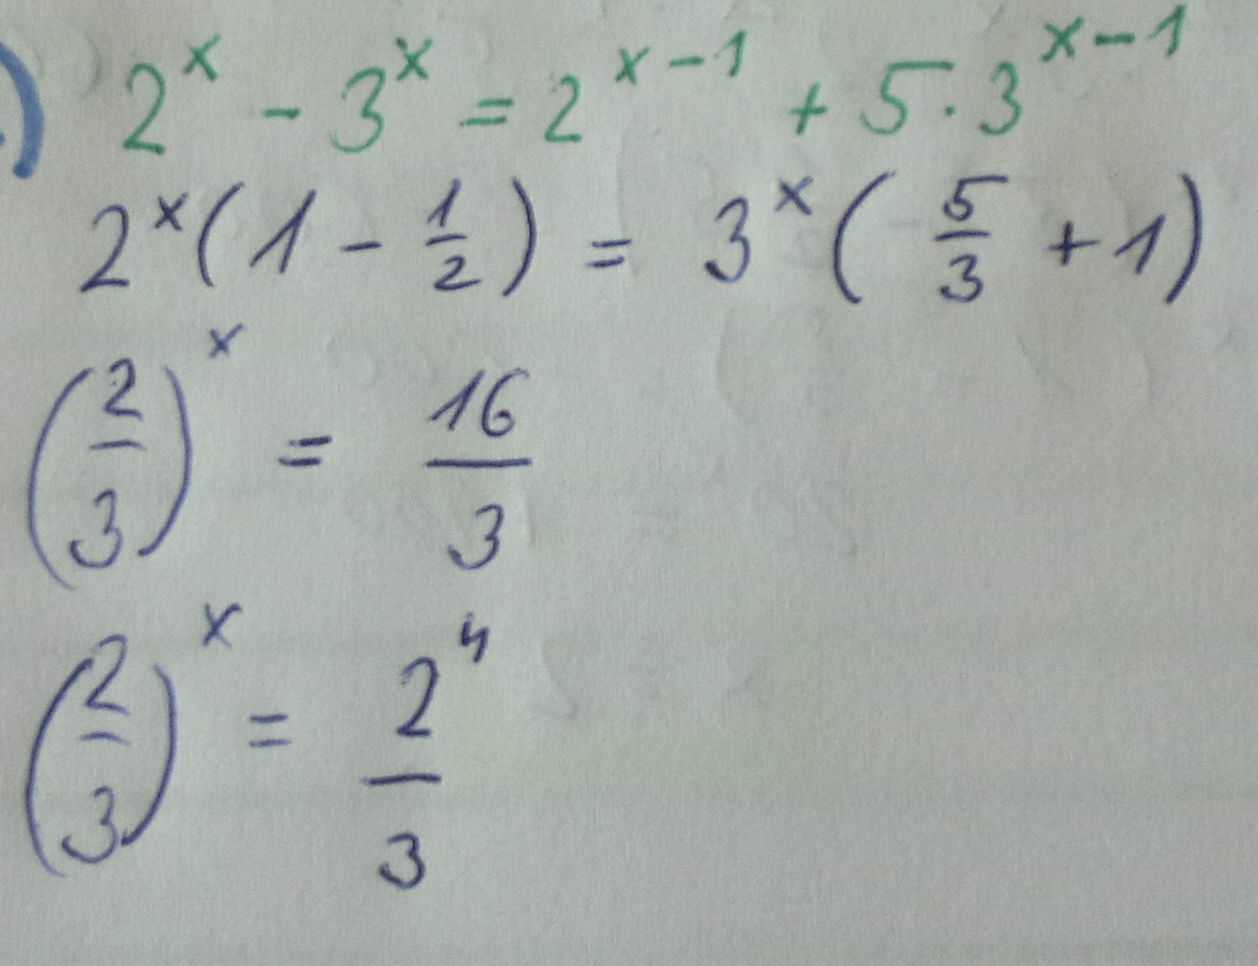 ) 2^x - 3^x = 2^{x-1} + 5 · 3^{x-1}
2^x (1 - 1/2) = 3^x (5/3 + 1)
(2/3)^x = 16/3
(2/3)^x = 2^4/3